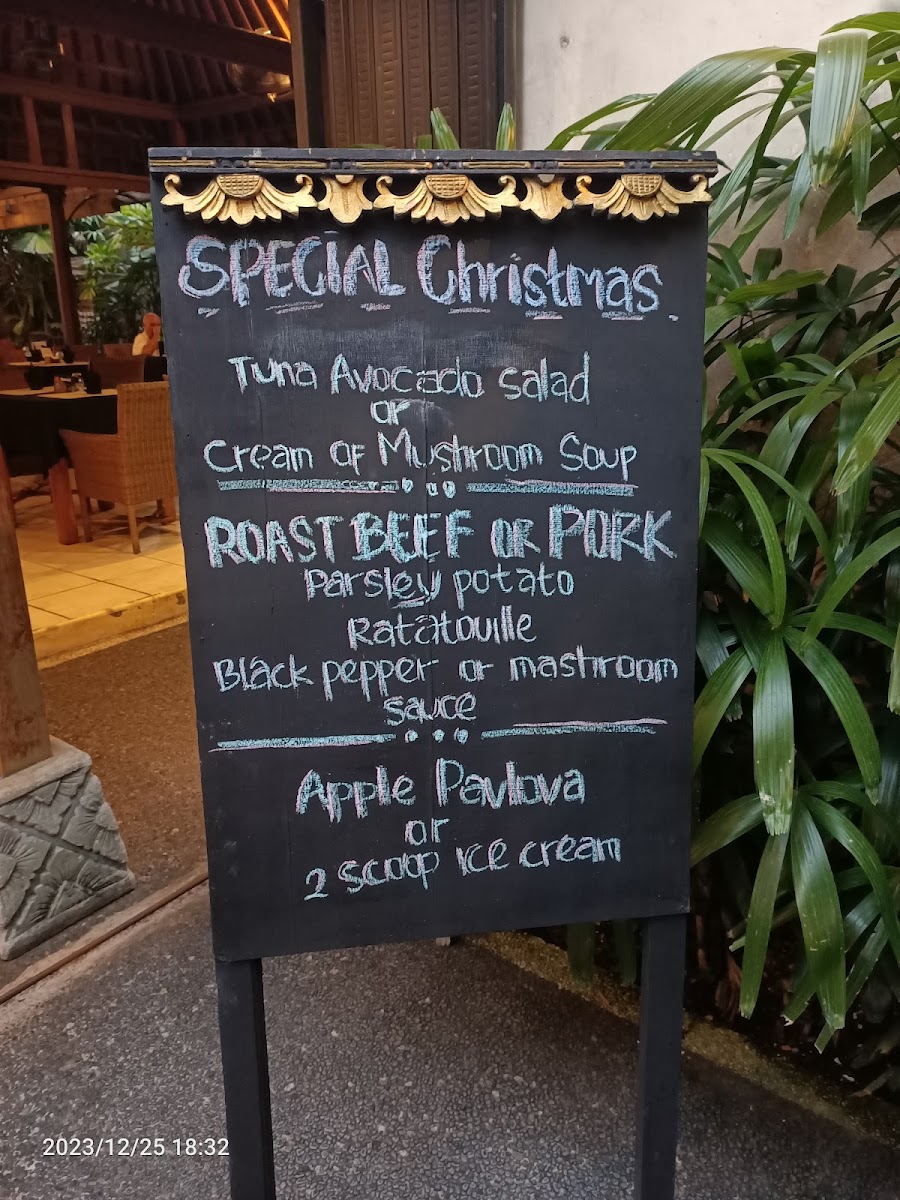 SPECIAL Christmas
Tuna Avocado salad
or
Cream of Mushroom Soup
ROAST BEEF OR PORK
Parsley potato
Ratatouille
Black pepper or mashroom
sauce
Apple Pavlova
or
2 scoop ice cream
2023/12/25 18:32